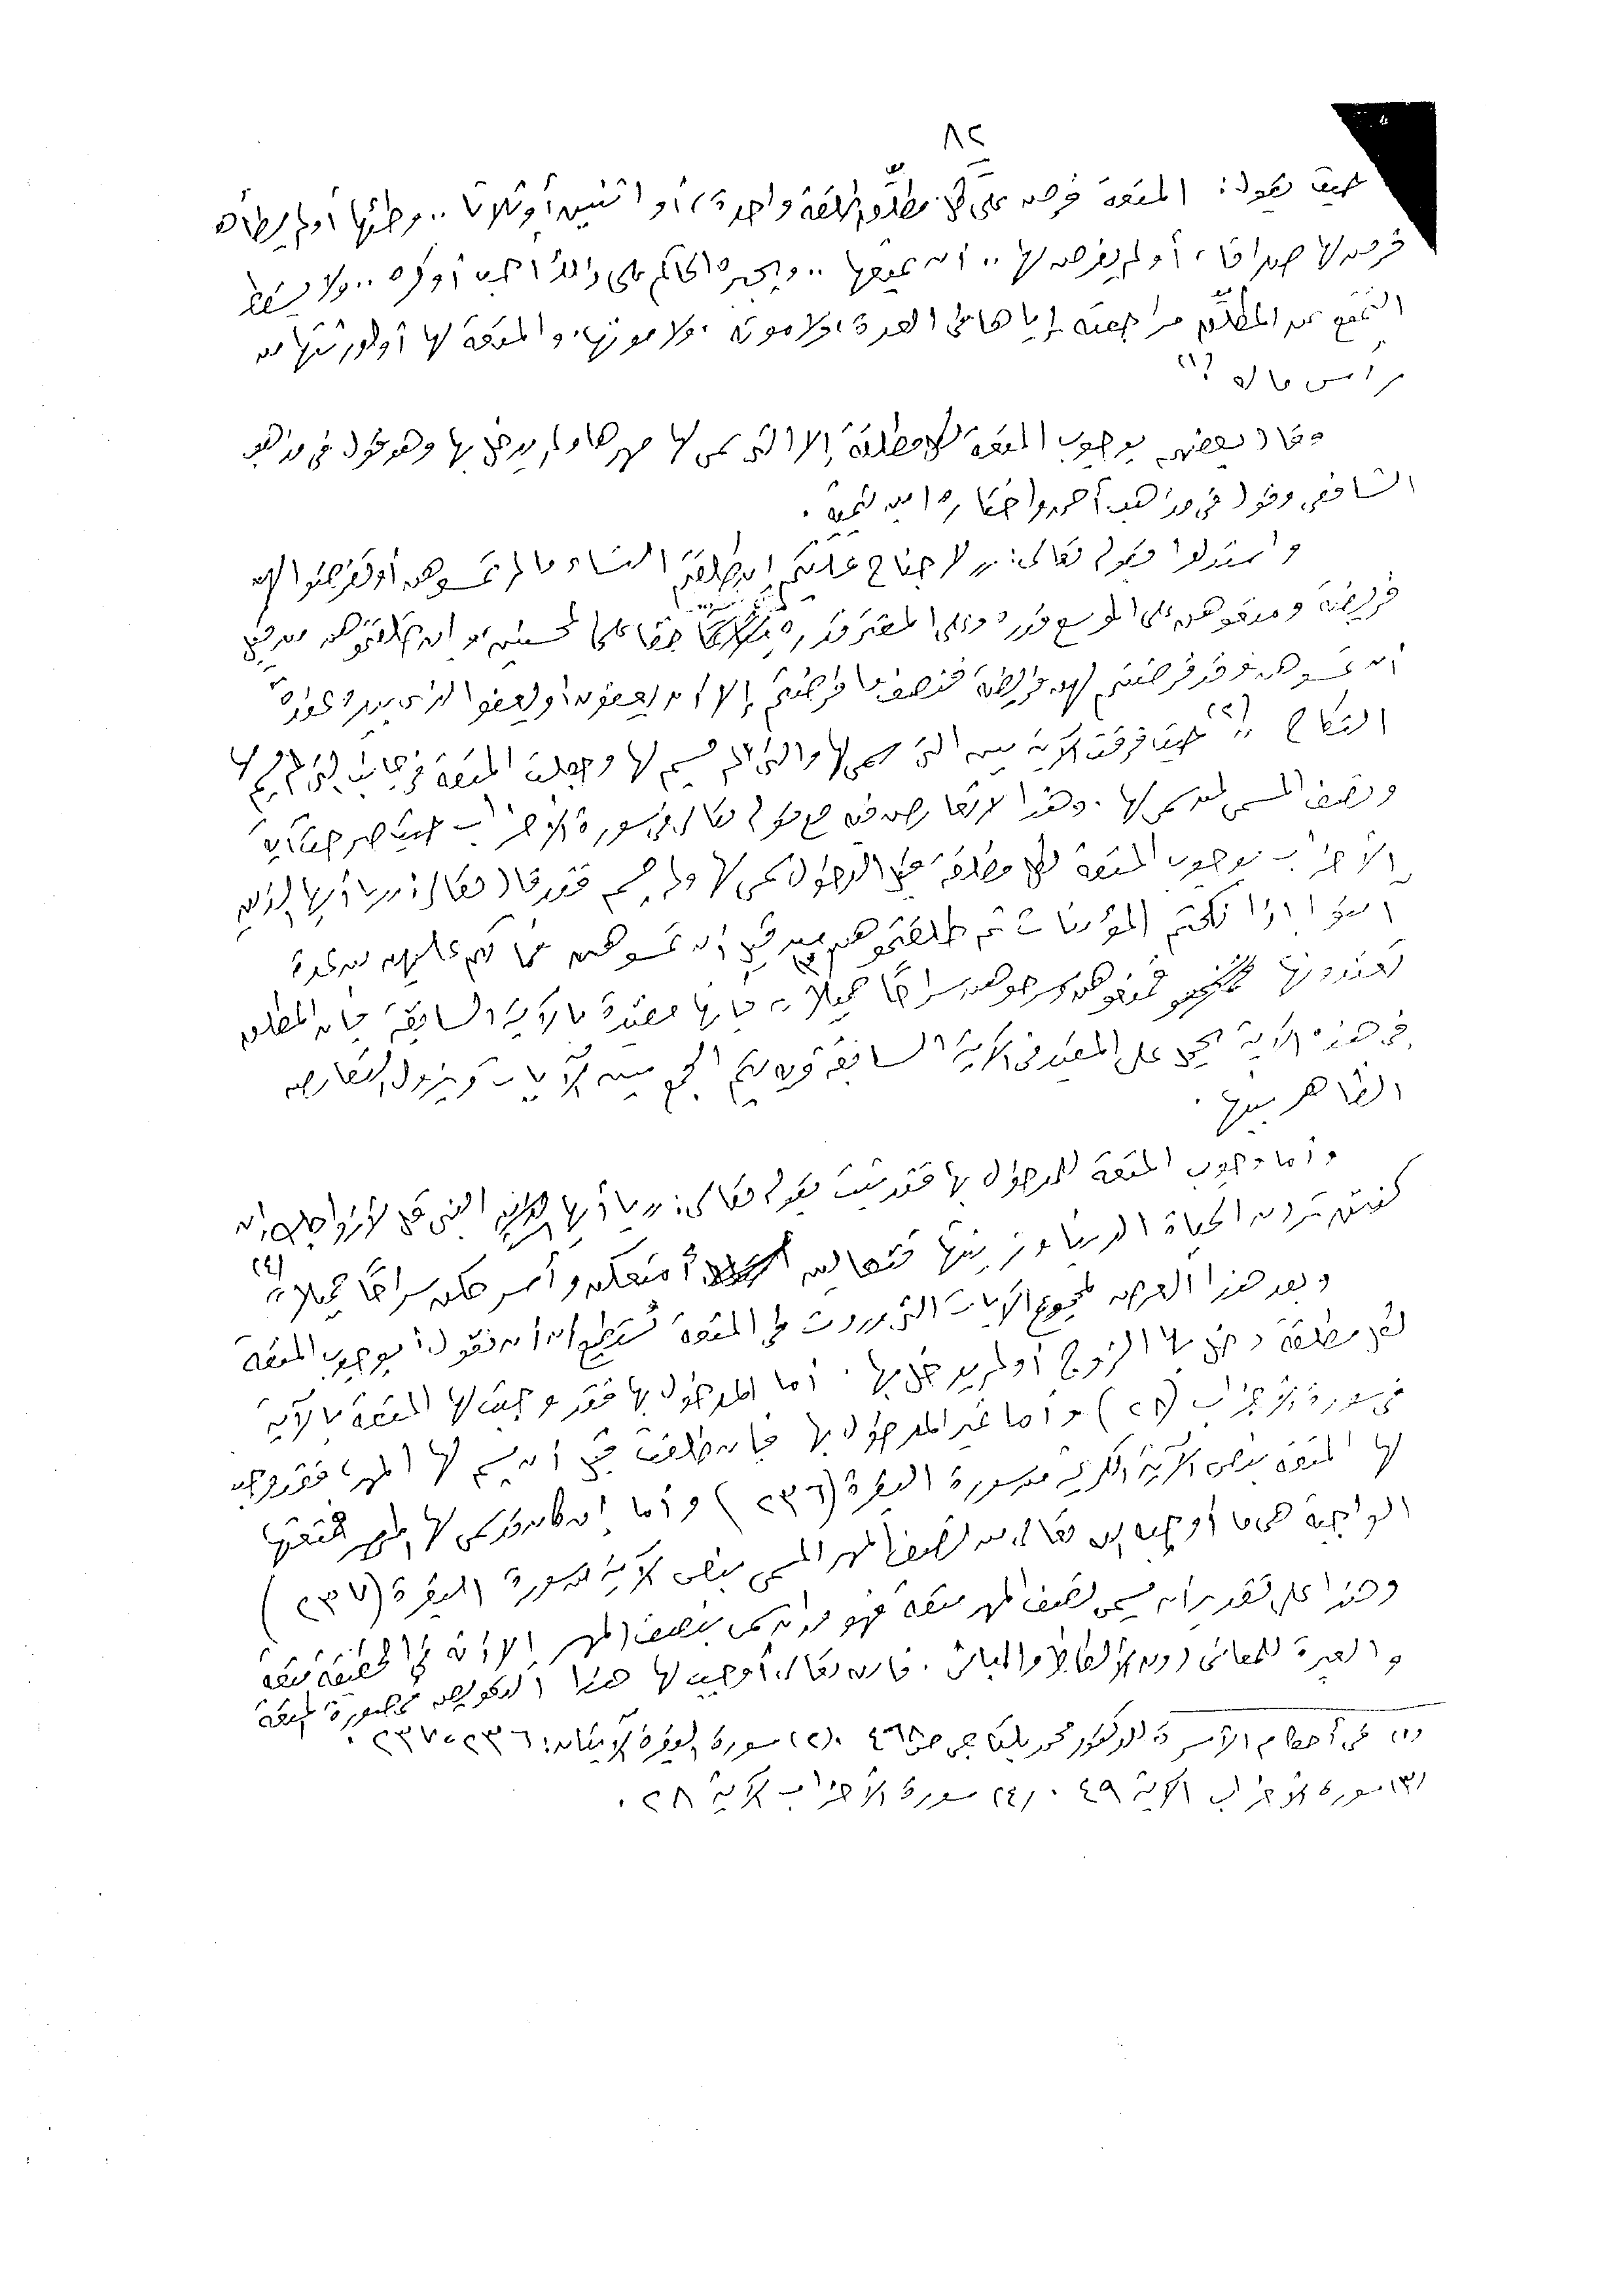 ٨٢
حيث يقول: المتعة فرض على كل مطلِّق طلقة واحدة، أو اثنتين أو ثلاثا .. وطئها أولم يطأها
فرض لها صداقا، أو لم يفرض لها .. أن يمتعها .. ويجبره الحاكم على ذلك أحب أو كره .. ولا يسقط
التمتع عن المطلِّق مراجعته إياها فى العدة، ولا موته . ولا موتها، والمتعة لها أو لورثتها من
رأس ماله (١)
وقال بعضهم بوجوب المتعة لكل مطلقة إلا التى سمى لها مهرها ولم يدخل بها وهو قول فى مذهب
الشافعى وقول فى مذهب أحمد واختاره ابن تيمية .
واستدلوا بقوله تعالى: " لا جناح عليكم إن طلقتم النساء ما لم تمسوهن أو تفرضوا لهن
فريضة ومتعوهن على الموسع قدره وعلى المقتر قدره متاعًا حقا على المحسنين، وإن طلقتموهن من قبل
أن تمسوهن وقد فرضتم لهن فريضة فنصف ما فرضتم إلا أن يعفون أو يعفوا الذى بيده عقدة
النكاح " (٢) حيث فرقت الآية بين التى سمى لها والتى لم يسم لها وجعلت المتعة فى جانب التى لم يسم لها
ونصف المسمى لمن سمى لها . وهذا لا تعارض فيه مع قوله تعالى فى سورة الأحزاب حيث صرحت آية
الأحزاب بوجوب المتعة لكل مطلقة قبل الدخول سمى لها ولم يسم فقد قال تعالى: " يا أيها الذين
آمنوا إذا نكحتم المؤمنات ثم طلقتموهن من قبل أن تمسوهن فما لكم عليهن من عدة
تعتدونها فمتعوهن وسرحوهن سراحًا جميلا " (٣) فإنها مقيدة بالآية السابقة فإن المطلق
فى هذه الآية يحمل على المقيد فى الآية السابقة وبه يتم الجمع بين الآيات ويزول التعارض
الظاهر بينها .
وأما وجوب المتعة للمدخول بها فقد ثبت بقوله تعالى: " يا أيها النبى قل لأزواجك إن
كنتن تردن الحياة الدنيا وزينتها فتعالين أمتعكن وأسرحكن سراحًا جميلا " (٤)
وبعد هذا العرض لمجموع الآيات التى وردت فى المتعة نستطيع أن نقول: بوجوب المتعة
لكل مطلقة دخل بها الزوج أو لم يدخل بها . أما المدخول بها فقد وجبت لها المتعة بالآية
فى سورة الأحزاب (٢٨) وأما غير المدخول بها فإن طلقت قبل أن يسم لها المهر، فقد وجب
لها المتعة بنص الآية الكريمة من سورة البقرة (٢٣٦) وأما إن كان قد سمى لها المهر فمتعتها
الواجبة هى ما أوجبه الله تعالى من نصف المهر المسمى بنص الآية من سورة البقرة (٢٣٧)
وهذا على تقدير أن يسمى نصف المهر متعة فهو وإن سمى بنصف المهر إلا أنه فى الحقيقة متعة
والعبرة للمعانى دون الألفاظ والمبانى . فالله تعالى أوجب لها هذا التعويض فى صورة المتعة
(١) فى أحكام الأسرة للدكتور محمد بلتاجى ص ٤٦٥ . (٢) سورة البقرة الآيتان: ٢٣٦، ٢٣٧ .
(٣) سورة الأحزاب الآية ٤٩ . (٤) سورة الأحزاب الآية ٢٨ .